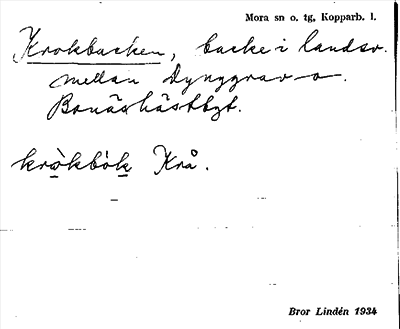 Mora sn o. tg, Kopparb. l.
Krokbacken, backe i landsv.
mellan Dynggrav o.
Bonäshästbgt.
kròkbók Krå.
Bror Lindén 1934